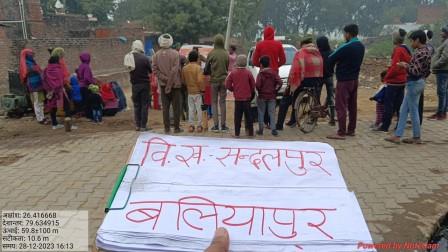 वि.स. सन्दलपुर
बलियापुर
अक्षांश: 26.416668
देशान्तर: 79.634915
ऊंचाई: 59.8±100 m
सटीकता: 10.6 m
समय: 28-12-2023 16:13
Powered by NoteCam